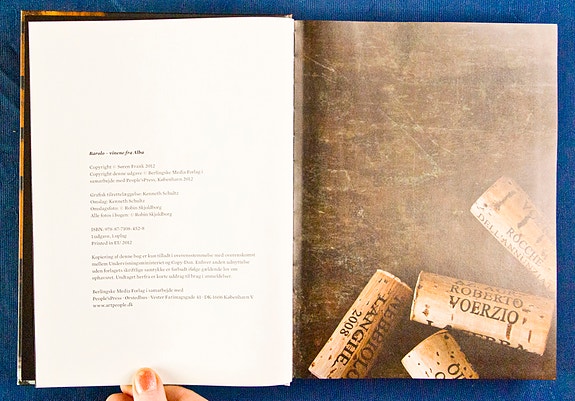 Barolo – vinene fra Alba
Copyright © Søren Frank 2012
Copyright denne udgave © Berlingske Media Forlag i
samarbejde med People'sPress, København 2012
Grafisk tilrettelæggelse: Kenneth Schultz
Omslag: Kenneth Schultz
Omslagsfoto: © Robin Skjoldborg
Alle fotos i bogen: © Robin Skjoldborg
ISBN:
1. udgave, 1. oplag
Printed in EU 2012
Kopiering af denne bog er kun tilladt i overensstemmelse med overenskomst
mellem Undervisningsministeriet og Copy-Dan. Enhver anden udnyttelse
uden forlagets skriftlige samtykke er forbudt ifølge gældende lov om
ophavsret. Undtaget herfra er korte uddrag til brug i anmeldelser.
Berlingske Media Forlag i samarbejde med
People'sPress · Ørstedhus · Vester Farimagsgade 41 · DK-1606 København V
www.artpeople.dk
ROCCHE
DELL'
ROBERTO
VOERZIO
NEBBIOLO
LANGHE
2008